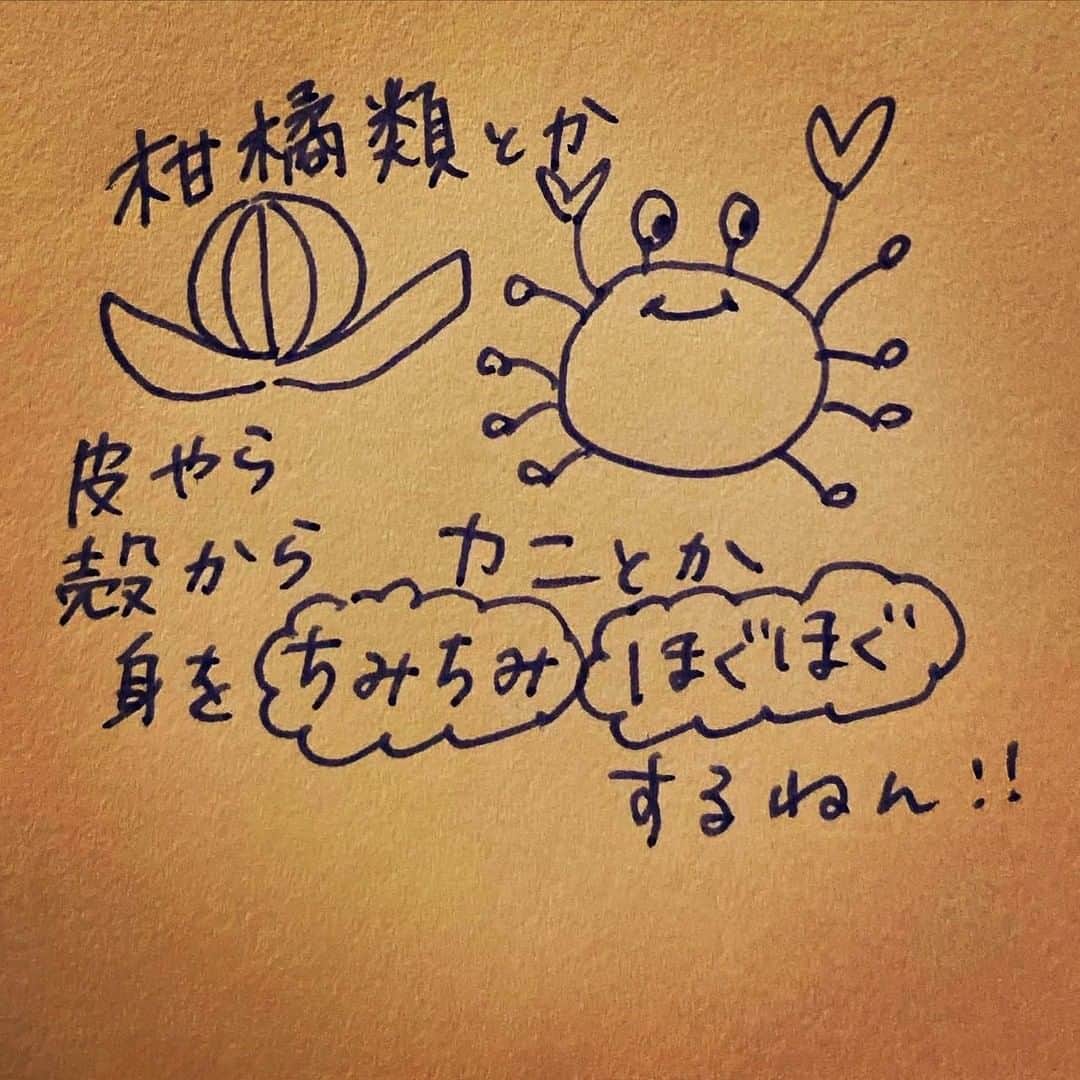 柑橘類とか
カニとか
皮やら
殻から
身をちみちみほぐほぐ
するねん!!